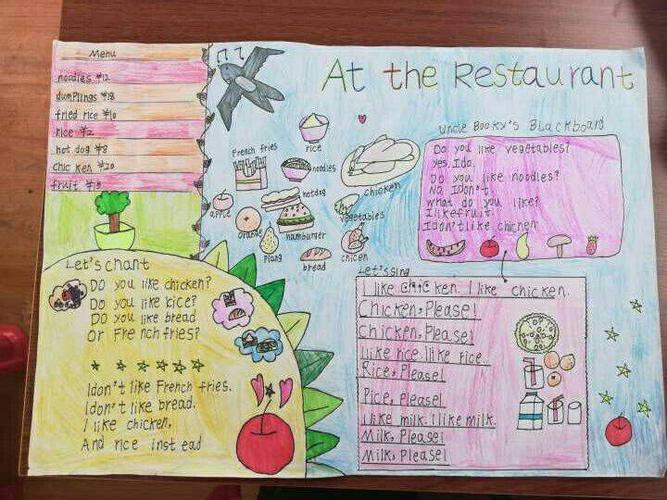 At the Restaurant
Menu
noodles ¥12
dumplings ¥18
fried rice ¥10
rice ¥2
hot dog ¥8
chicken ¥20
fruit ¥10
French fries
rice
noodles
chicken
apple
hotdog
vegetables
orange
hamburger
plang
bread
chicen
Uncle Booky's Blackboard
Do you like vegetables?
Yes, I do.
Do you like noodles?
No, I don't.
what do you like?
I like fruit.
I don't like chicken
Let's chant
Do you like chicken?
Do you like rice?
Do you like bread
Or French fries?
I don't like French fries.
I don't like bread.
I like chicken,
And rice instead
Let's sing
I like chicken. I like chicken.
Chicken, Please!
Chicken, Please!
I like rice. like rice.
Rice, Please!
Rice, please!
I like milk. I like milk.
Milk, Please!
Milk, Please!